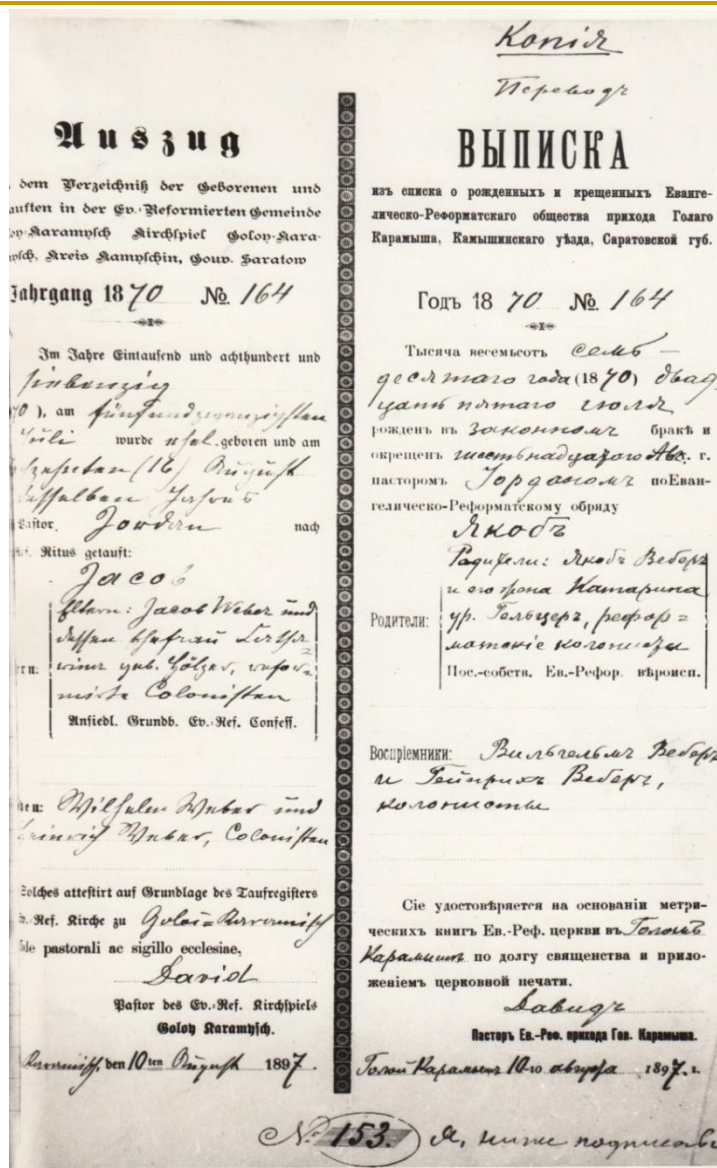 Копія
Переводъ
Auszug
dem Verzeichniß der Geborenen und
auften in der Ev.-Reformierten Gemeinde
loy-Karamysch Kirchspiel Goloy-Kara-
ysch, Kreis Kamyschin, Gouv. Saratow
Jahrgang 1870 No. 164
Im Jahre Eintausend und achthundert und
siebenzig
70), am fünfundzwanzigsten
Juli wurde ehel. geboren und am
sechzehnten (16) August
desselben Jahres
Pastor Jordan nach
Ref. Ritus getauft:
Jacob
Eltern: Jacob Weber und
dessen Ehefrau Catha-
rina geb. Hölzer, refor-
mirte Colonisten
Ansiedl. Grundb. Ev.-Ref. Confess.
en: Wilhelm Weber und
Heinrich Weber, Colonisten
Solches attestirt auf Grundlage des Taufregisters
Ev.-Ref. Kirche zu Goloi-Karamisch
fide pastorali ac sigillo ecclesiae,
David
Pastor des Ev.-Ref. Kirchspiels
Goloy Karamysch.
Karamisch, den 10ten August 1897.
ВЫПИСКА
изъ списка о рожденныхъ и крещенныхъ Еванге-
лическо-Реформатскаго общества прихода Голаго
Карамыша, Камышинскаго уѣзда, Саратовской губ.
Годъ 1870 No. 164
Тысяча весемьсотъ семь-
десятаго года (1870) двад
цать пятаго июля
рожденъ въ законномъ бракѣ и
окрещенъ шестьнадцатого Авг. г.
пасторомъ Іорданомъ по Еван-
гелическо-Реформатскому обряду
Якобъ
Родители: Якобъ Веберъ
и его жена Катарина
Родители: ур. Гельцеръ, рефор=
матскіе колонисты
Пос.-собств. Ев.-Рефор. вѣроисп.
Воспріемники: Вильгельмъ Веберъ
и Гейнрихъ Веберъ,
колонисты
Сіе удостовѣряется на основаніи метри-
ческихъ книгъ Ев.-Реф. церкви въ Голомъ
Карамышѣ по долгу священства и прило-
женіемъ церковной печати.
Давидъ
Пасторъ Ев.-Реф. прихода Гол. Карамыша.
Голый Карамышъ 10-го августа 1897. г.
No 153. Я, ниже подписавш